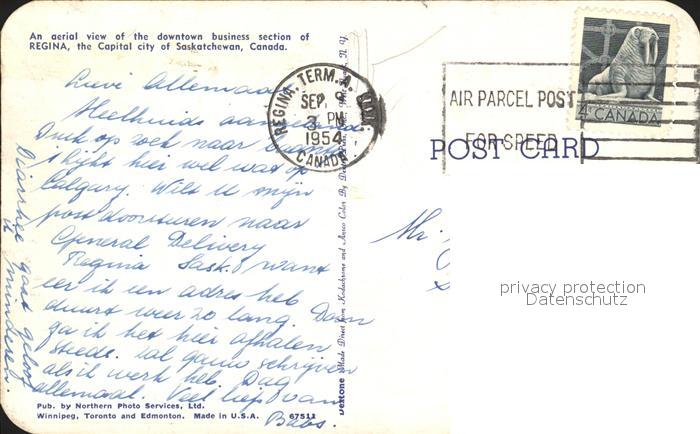 An aerial view of the downtown business section of
REGINA, the Capital city of Saskatchewan, Canada.
Lieve Allemaal
Heelhuids
Druk op zoek naar
't lijkt hier wel wat op
Calgary. Wilt U mijn
post doorsturen naar
General Delivery
Regina Sask. want
eer ik een adres heb
duurt weer zo lang. Dan
ga ik het hier afhalen
steeds. zal gauw schrijven
als ik werk heb. Dag
allemaal. Veel liefs van
Babs.
Diarrhee gaat geloof
ik minderen.
Pub. by Northern Photo Services, Ltd.
Winnipeg, Toronto and Edmonton. Made in U.S.A. 67511
Dextone Made Direct from Kodachrome and Ansco Color By
REGINA, TERM. A.
SEP 9
3 PM
1954
CANADA
AIR PARCEL POST
FOR SPEED
4¢ CANADA
POST CARD
Mr.
privacy protection
Datenschutz